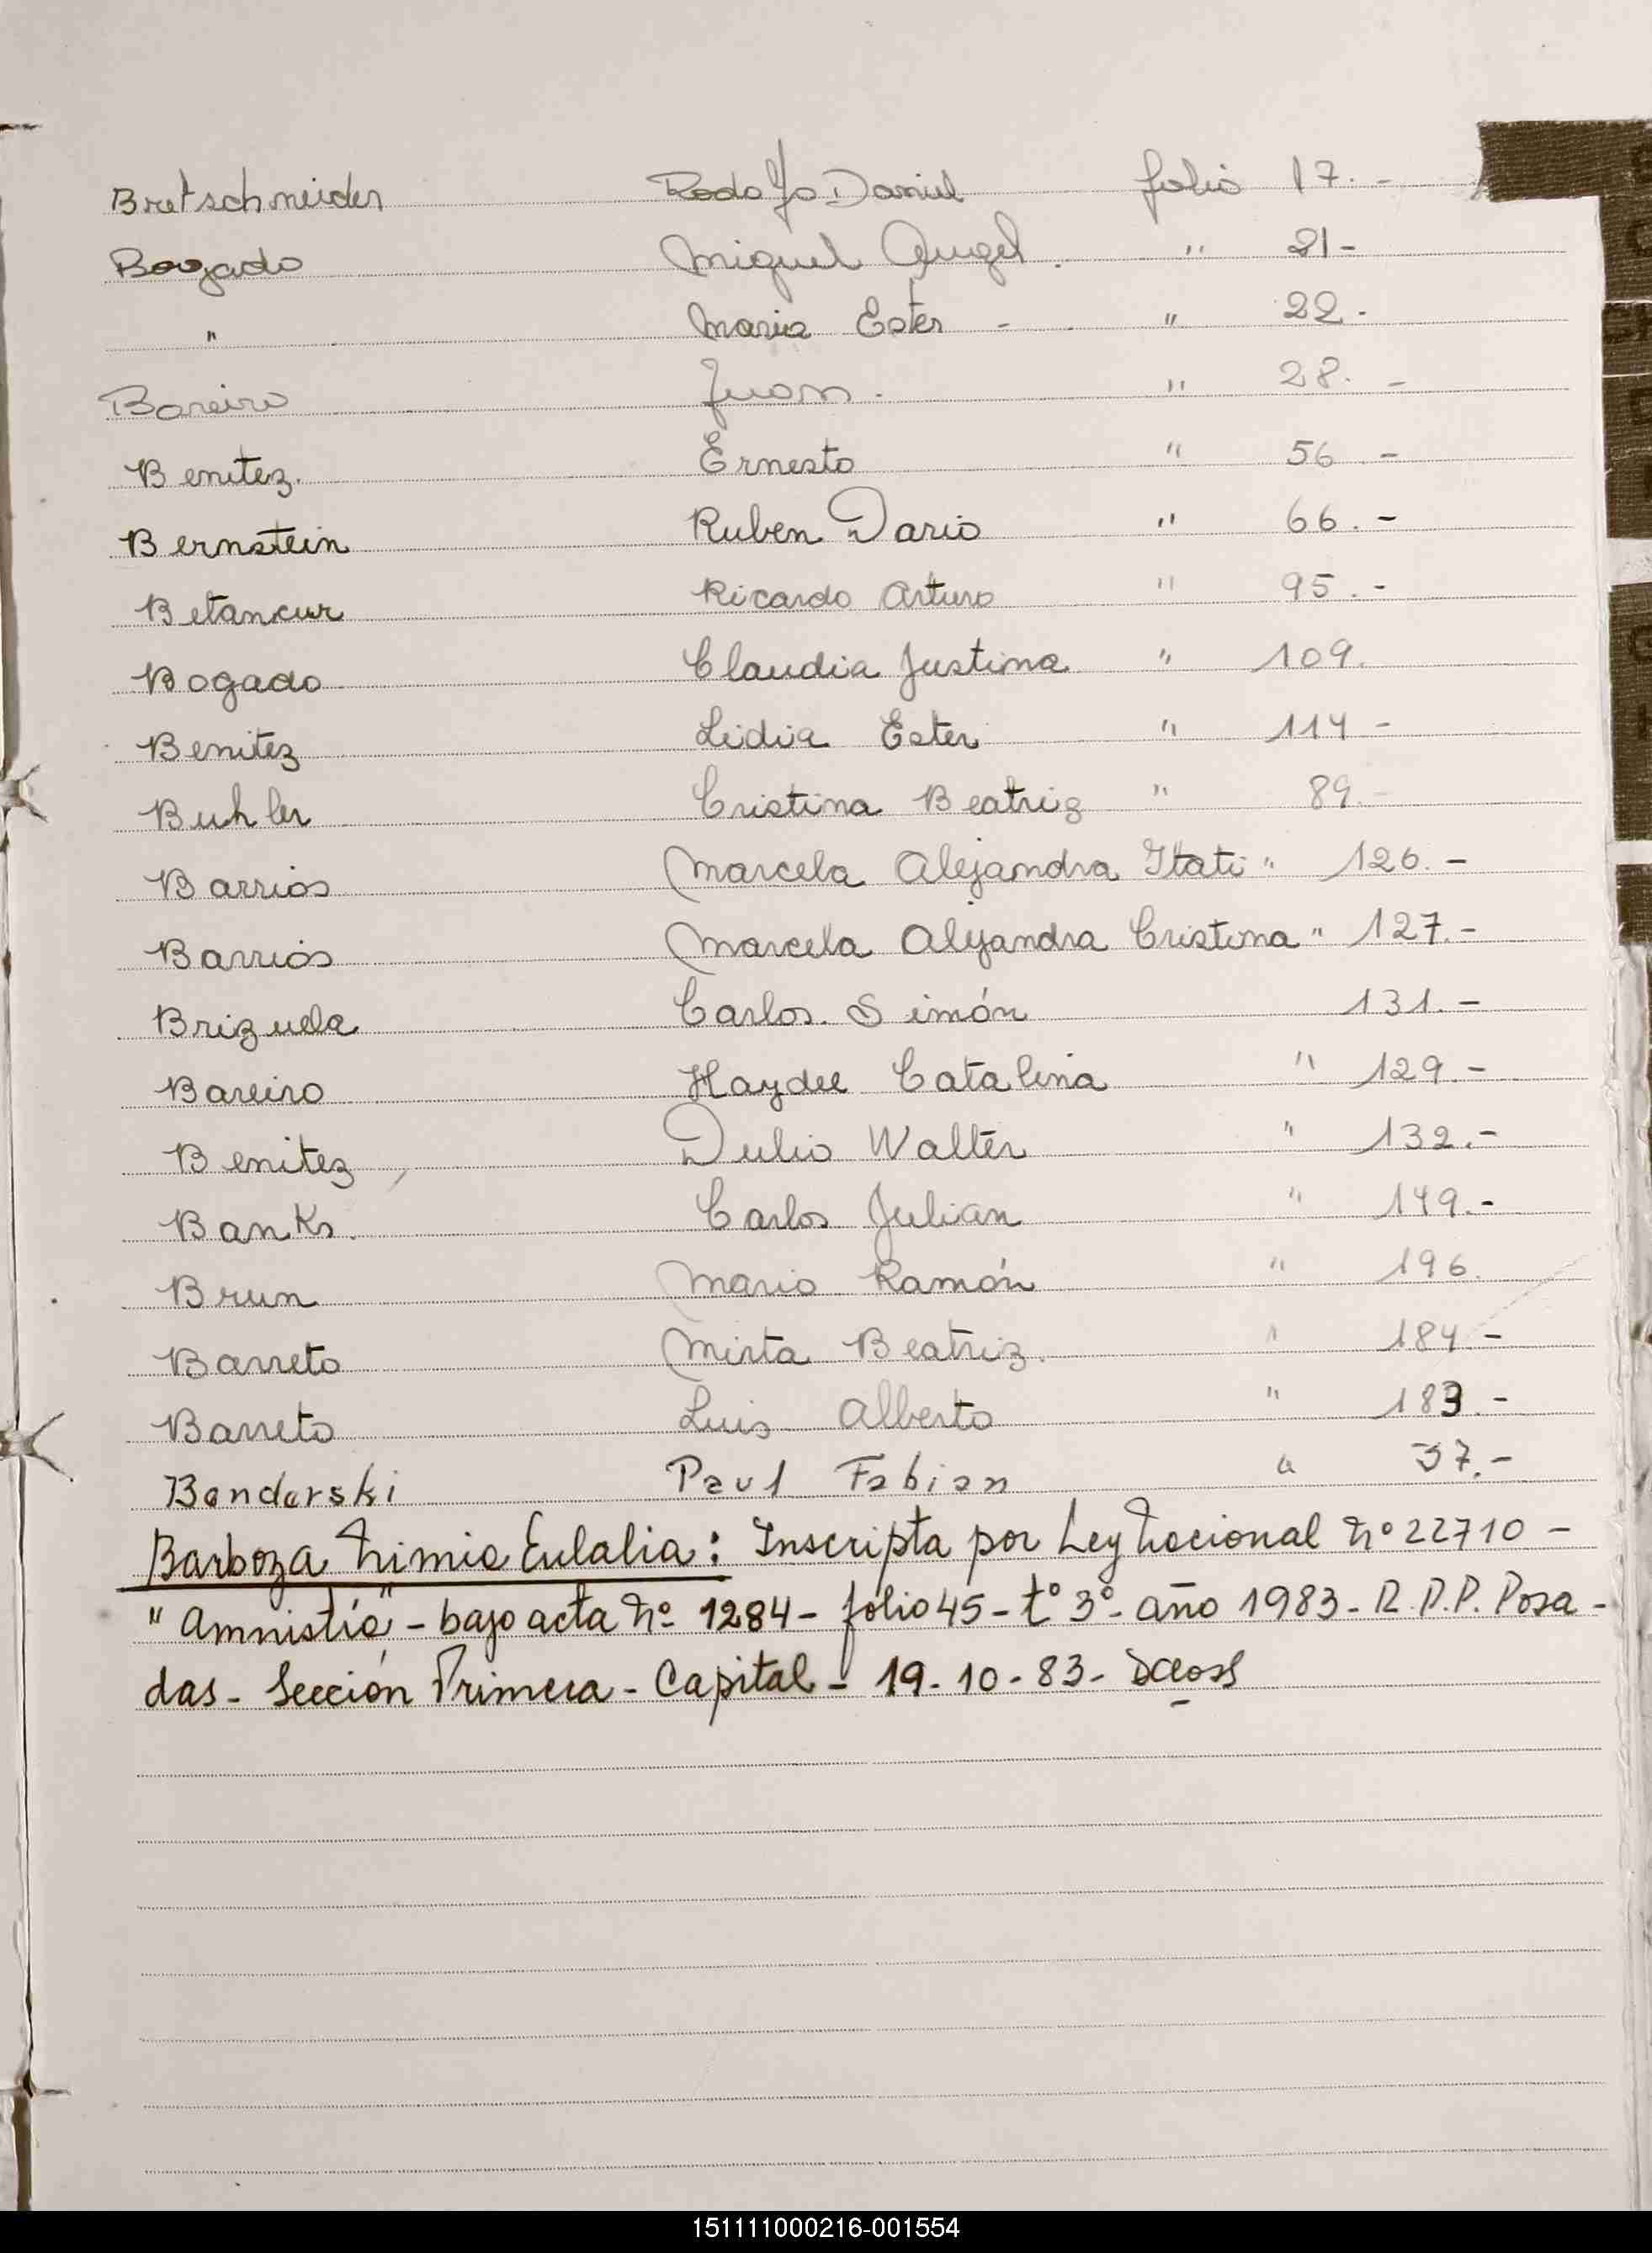 Bretschneider Rodolfo Daniel folio 17.-
Bogado Miguel Angel. " 21-
" Maria Ester - " 22.-
Bareiro Juan. " 28.-
Benitez. Ernesto " 56 -
Bernstein Ruben Dario " 66.-
Betancur Ricardo Arturo " 95.-
Bogado Claudia Justina " 109.
Benitez Lidia Ester " 114-
Buhler Cristina Beatriz " 89.-
Barrios Marcela Alejandra Itati " 126.-
Barrios Marcela Alejandra Cristina " 127.-
Brizuela Carlos. Simón 131.-
Bareiro Haydee Catalina " 129.-
Benitez, Dulio Walter " 132.-
Banks. Carlos Julian " 149.-
Brun Mario Ramón " 196.
Barreto Mirta Beatriz. " 184.-
Barreto Luis Alberto " 183.-
Bondarski Paul Fabian " 37.-
Barboza Eulalia: Inscripta por Ley Nacional Nº 22710 -
"Amnistía" - bajo acta Nº 1284 - folio 45 - tº 3º - año 1983 - R.P.P. Posa-
das - Sección Primera - Capital - 19-10-83-
151111000216-001554